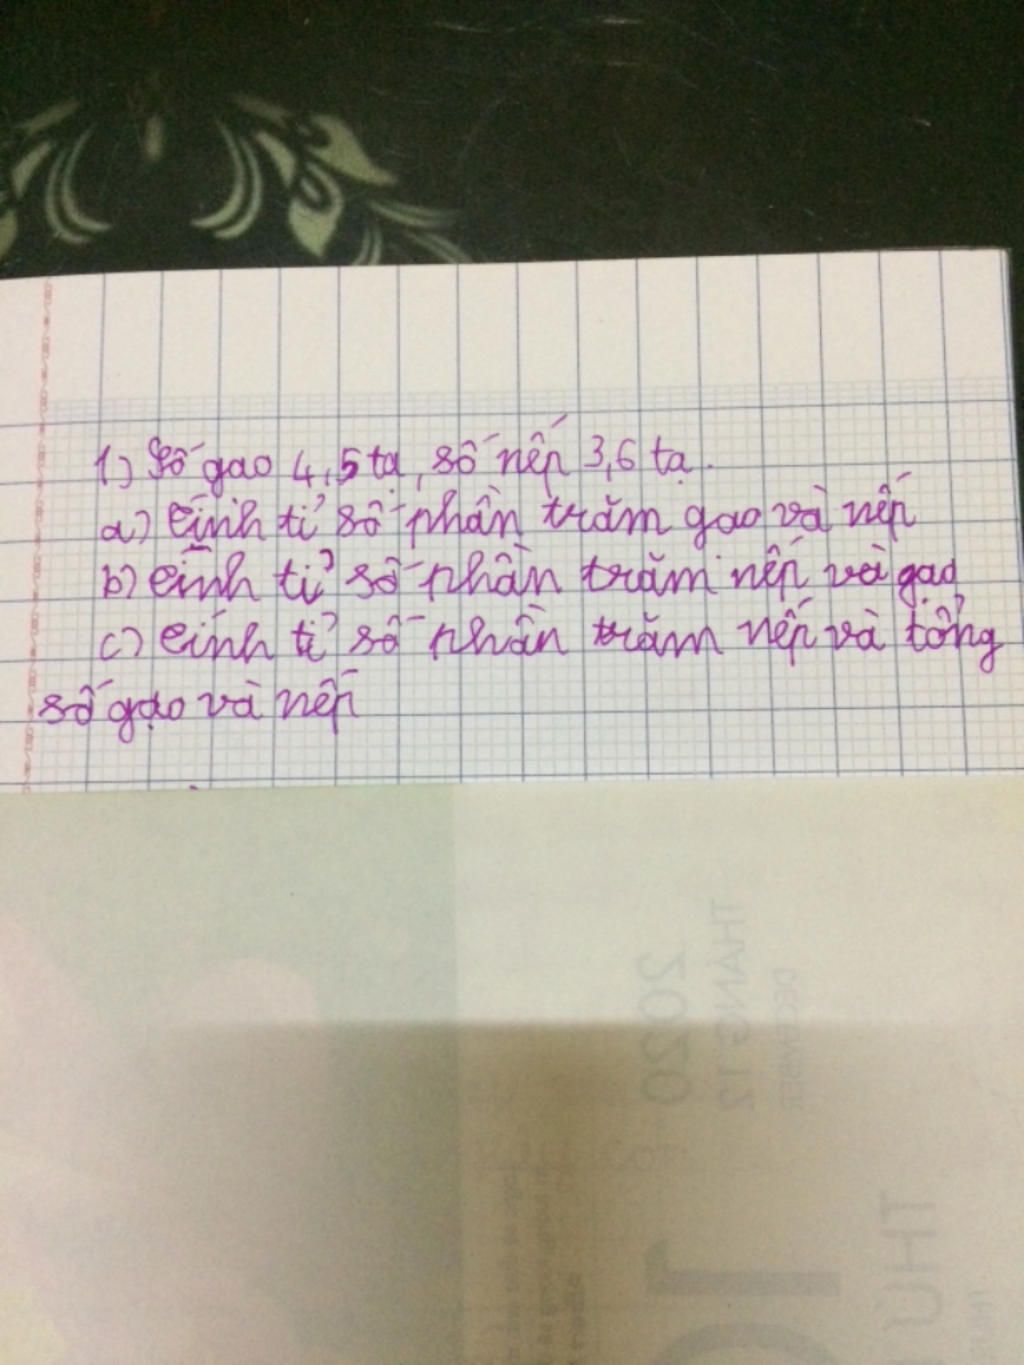 1) Số gạo 4,5 tạ, số nếp 3,6 tạ.
a) Tính tỉ số phần trăm gạo và nếp
b) Tính tỉ số phần trăm nếp và gạo
c) Tính tỉ số phần trăm nếp và tổng
số gạo và nếp
THÁNG 12
2020
DECEMBER
THỨ